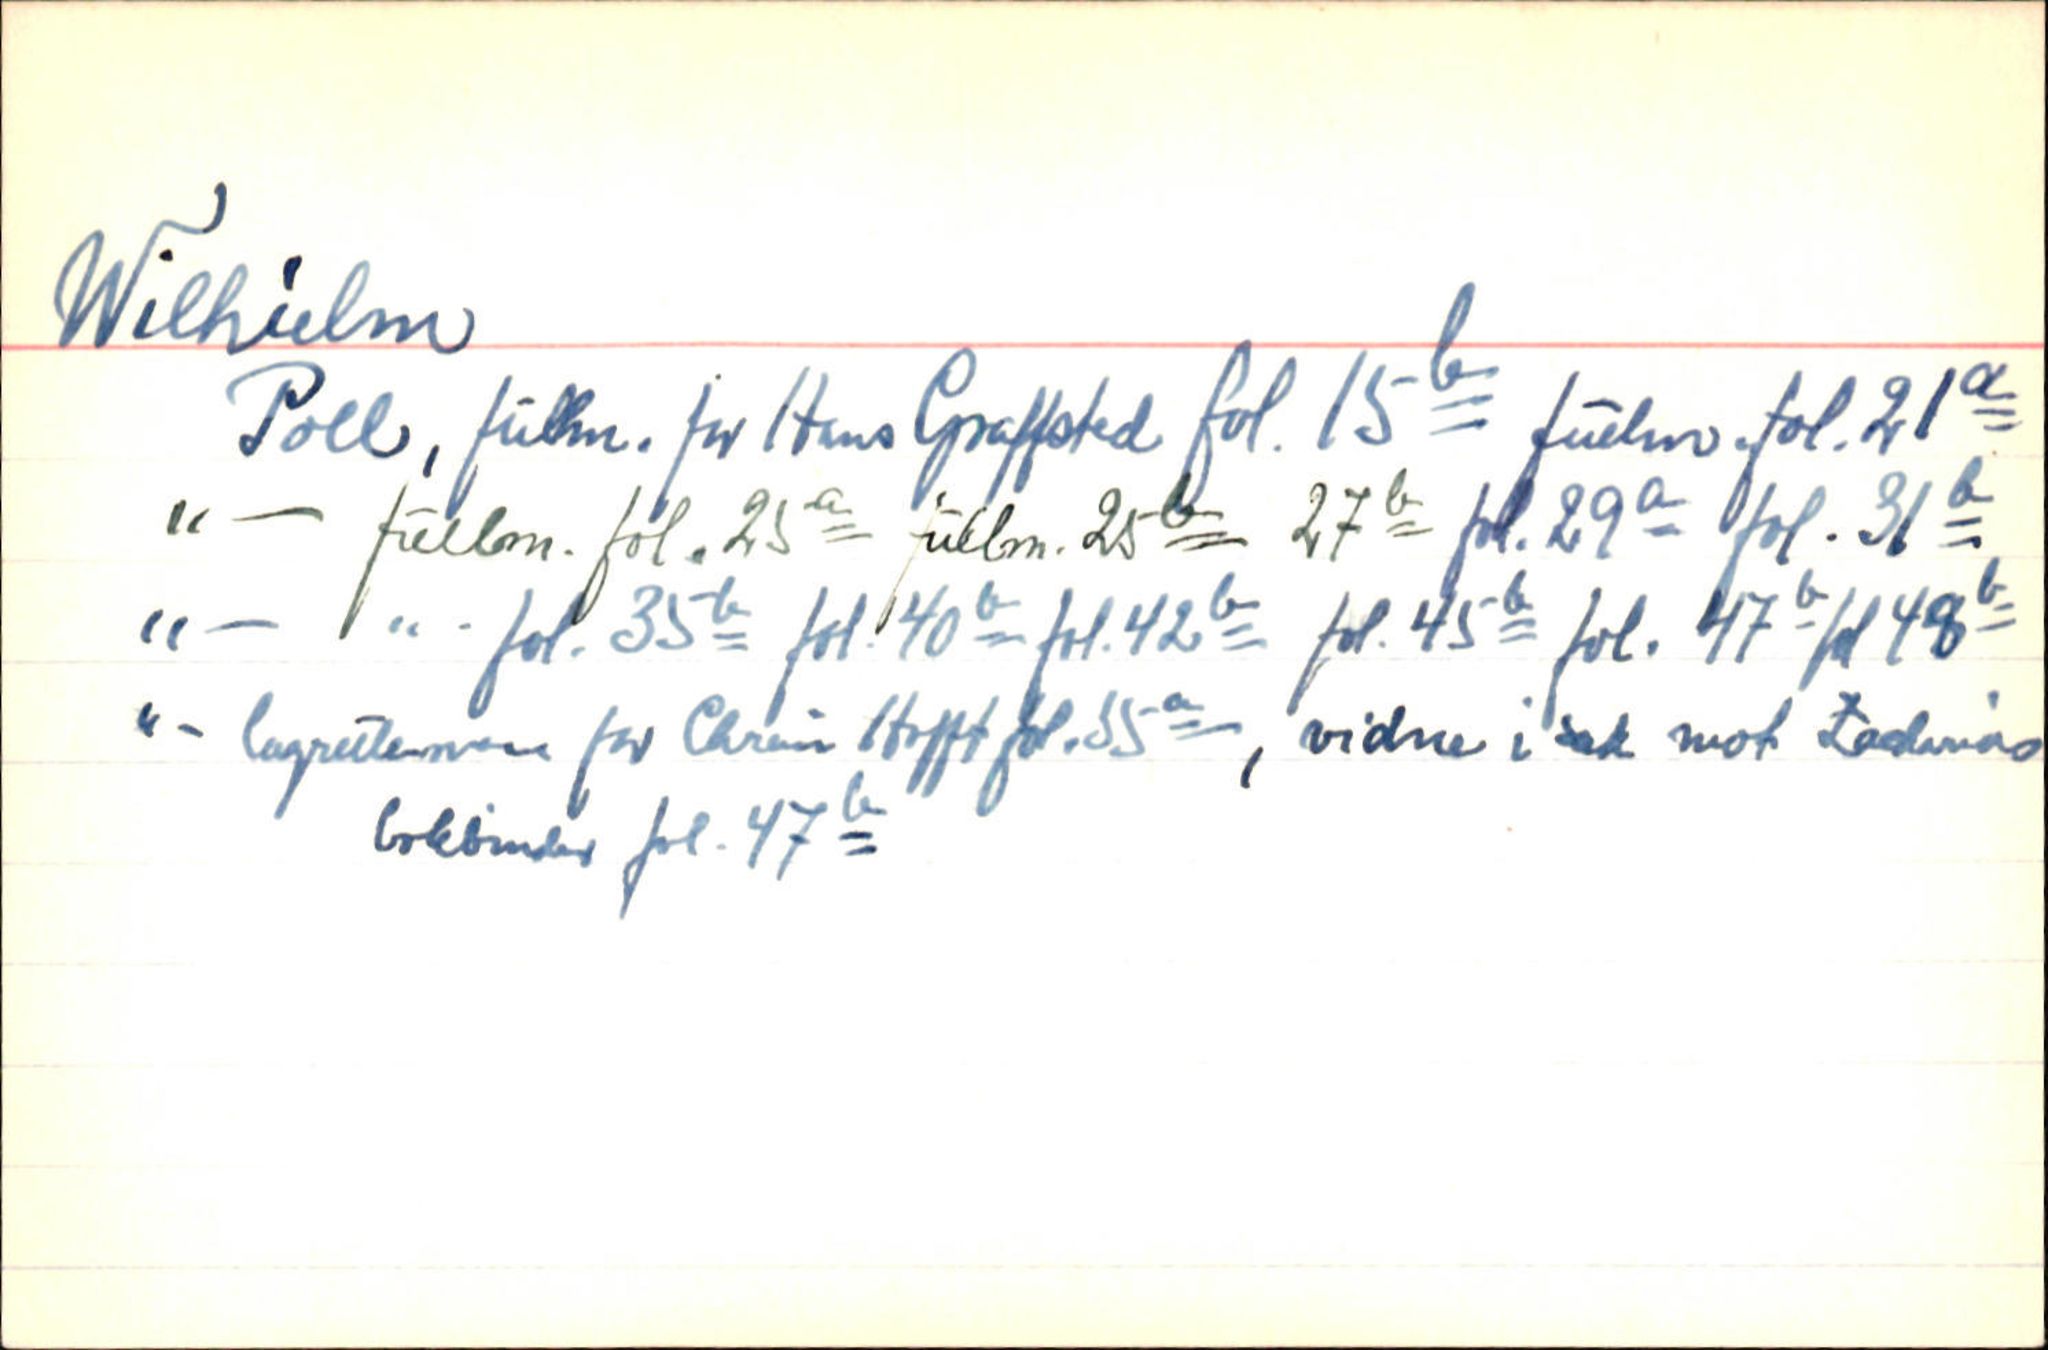 Wilhielm
Poll, fullm. for Hans Graffsted fol. 15b fullm. fol. 21a
"— fullm. fol. 25a fullm. 25b 27b fol. 29a fol. 31b
"— " - fol. 35b fol. 40b fol. 42b fol. 45b fol. 47b fol 48b
"- lagrettemann for Hofft fol. 35a, vidne i sak mot Zacharias
bokbinder fol. 47b